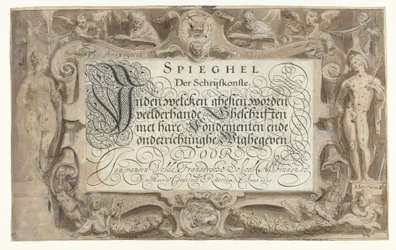 SPIEGHEL
Der Schrijfkonste,
Inden welcken ghesien worden
veelderhande Gheschriften
met hare Fondementen ende
onderrichtinghe Wtghegeven
DOOR
Jan vanden Velde, Fransoysche School Mr. binnen de
Mercurius